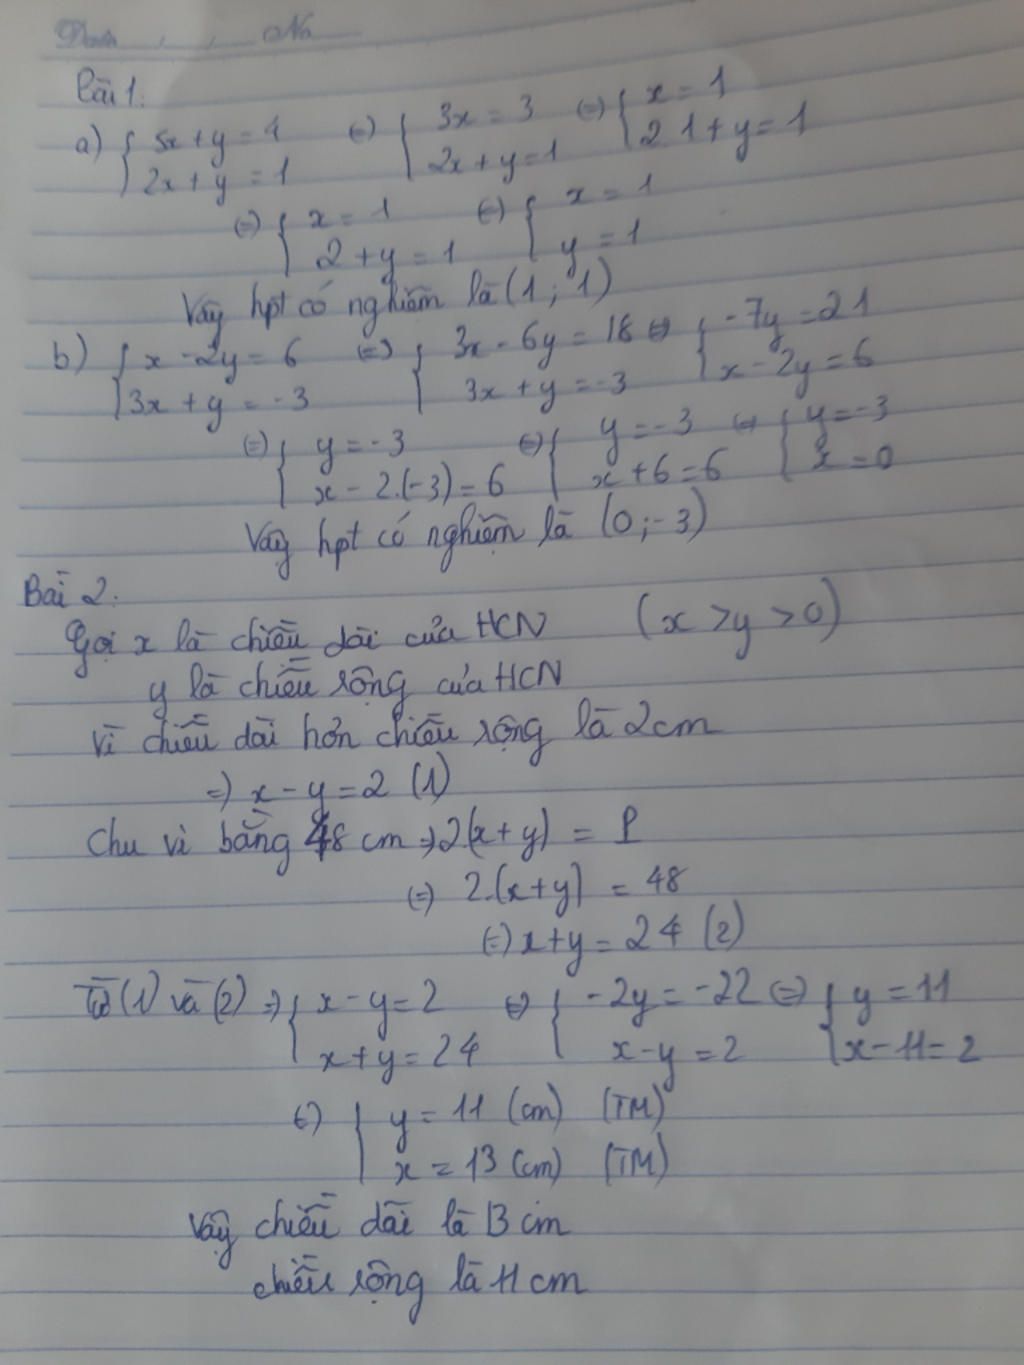 No
Bài 1:
a) { 5x + y = 4 (=) { 3x = 3 (=) { x = 1
2x + y = 1 2x + y = 1 2 1 + y = 1
(=) { x = 1 (=) { x = 1
2 + y = 1 y = 1
Vậy hpt có nghiệm là (1 ; 1)
b) { x - 2y = 6 (=) { 3x - 6y = 18 (=) { -7y = 21
3x + y = -3 3x + y = -3 x - 2y = 6
(=) { y = -3 (=) { y = -3 (=) { y = -3
x - 2.(-3) = 6 x + 6 = 6 x = 0
Vậy hpt có nghiệm là (0 ; -3)
Bài 2:
Gọi x là chiều dài của HCN (x > y > 0)
y là chiều rộng của HCN
Vì chiều dài hơn chiều rộng là 2cm
=) x - y = 2 (1)
Chu vi bằng 48 cm => 2(x + y) = P
(=) 2.(x + y) = 48
(=) x + y = 24 (2)
Từ (1) và (2) => { x - y = 2 (=) { -2y = -22 (=) { y = 11
x + y = 24 x - y = 2 x - 11 = 2
(=) { y = 11 (cm) (TM)
x = 13 (cm) (TM)
Vậy chiều dài là 13 cm
chiều rộng là 11 cm